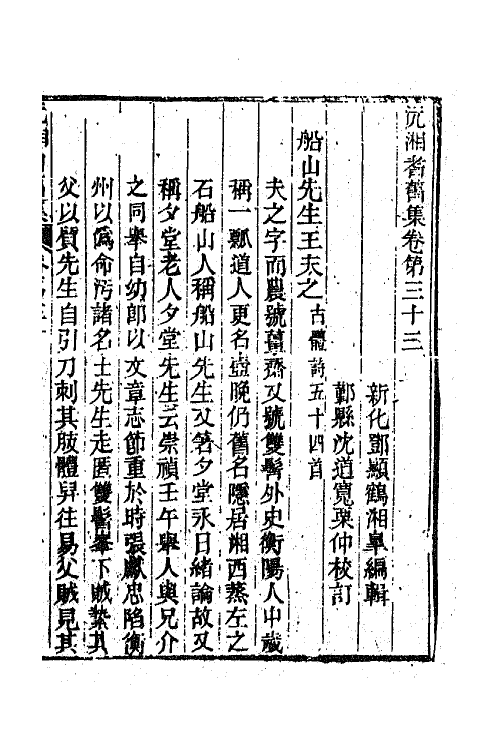 沅湘耆舊集卷第三十三
新化鄧顯鶴湘臯編輯
鄞縣沈道寬栗仲校訂
船山先生王夫之古體詩五十四首
夫之字而農號薑齋又號雙髻外史衡陽人中歲
稱一瓢道人更名壺晚仍舊名隱居湘西蒸左之
石船山人稱船山先生又箸夕堂永日緒論故又
稱夕堂老人夕堂先生云崇禎壬午舉人與兄介
之同舉自幼卽以文章志節重於時張獻忠陷衡
州以僞命汚諸名士先生走匿雙髻峯下賊縶其
父以質先生自引刀刺其肢體舁往易父賊見其